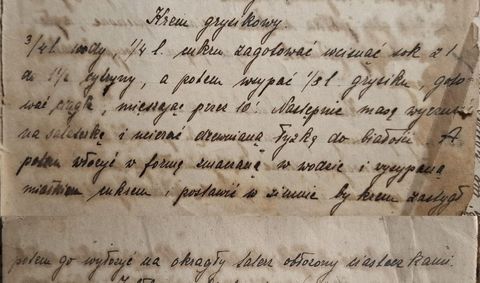 Krem grysikowy.
3/4 l. wody 1/4 l. cukru zagotować wcisnąć sok z 1
do 1 1/2 cytryny, a potem wsypać 1/5 l grysiku, goto-
wać ciągle, mieszając przez 10'. Następnie masę wyrzucić
na salaterkę i ucierać drewnianą łyżką do białości. A
potem włożyć w formę zmaczaną w wodzie i wysypaną
miałkiem cukrem i postawić w zimnie by krem zastygł
potem go wyłożyć na okrągły talerz obłożony ciasteczkami.